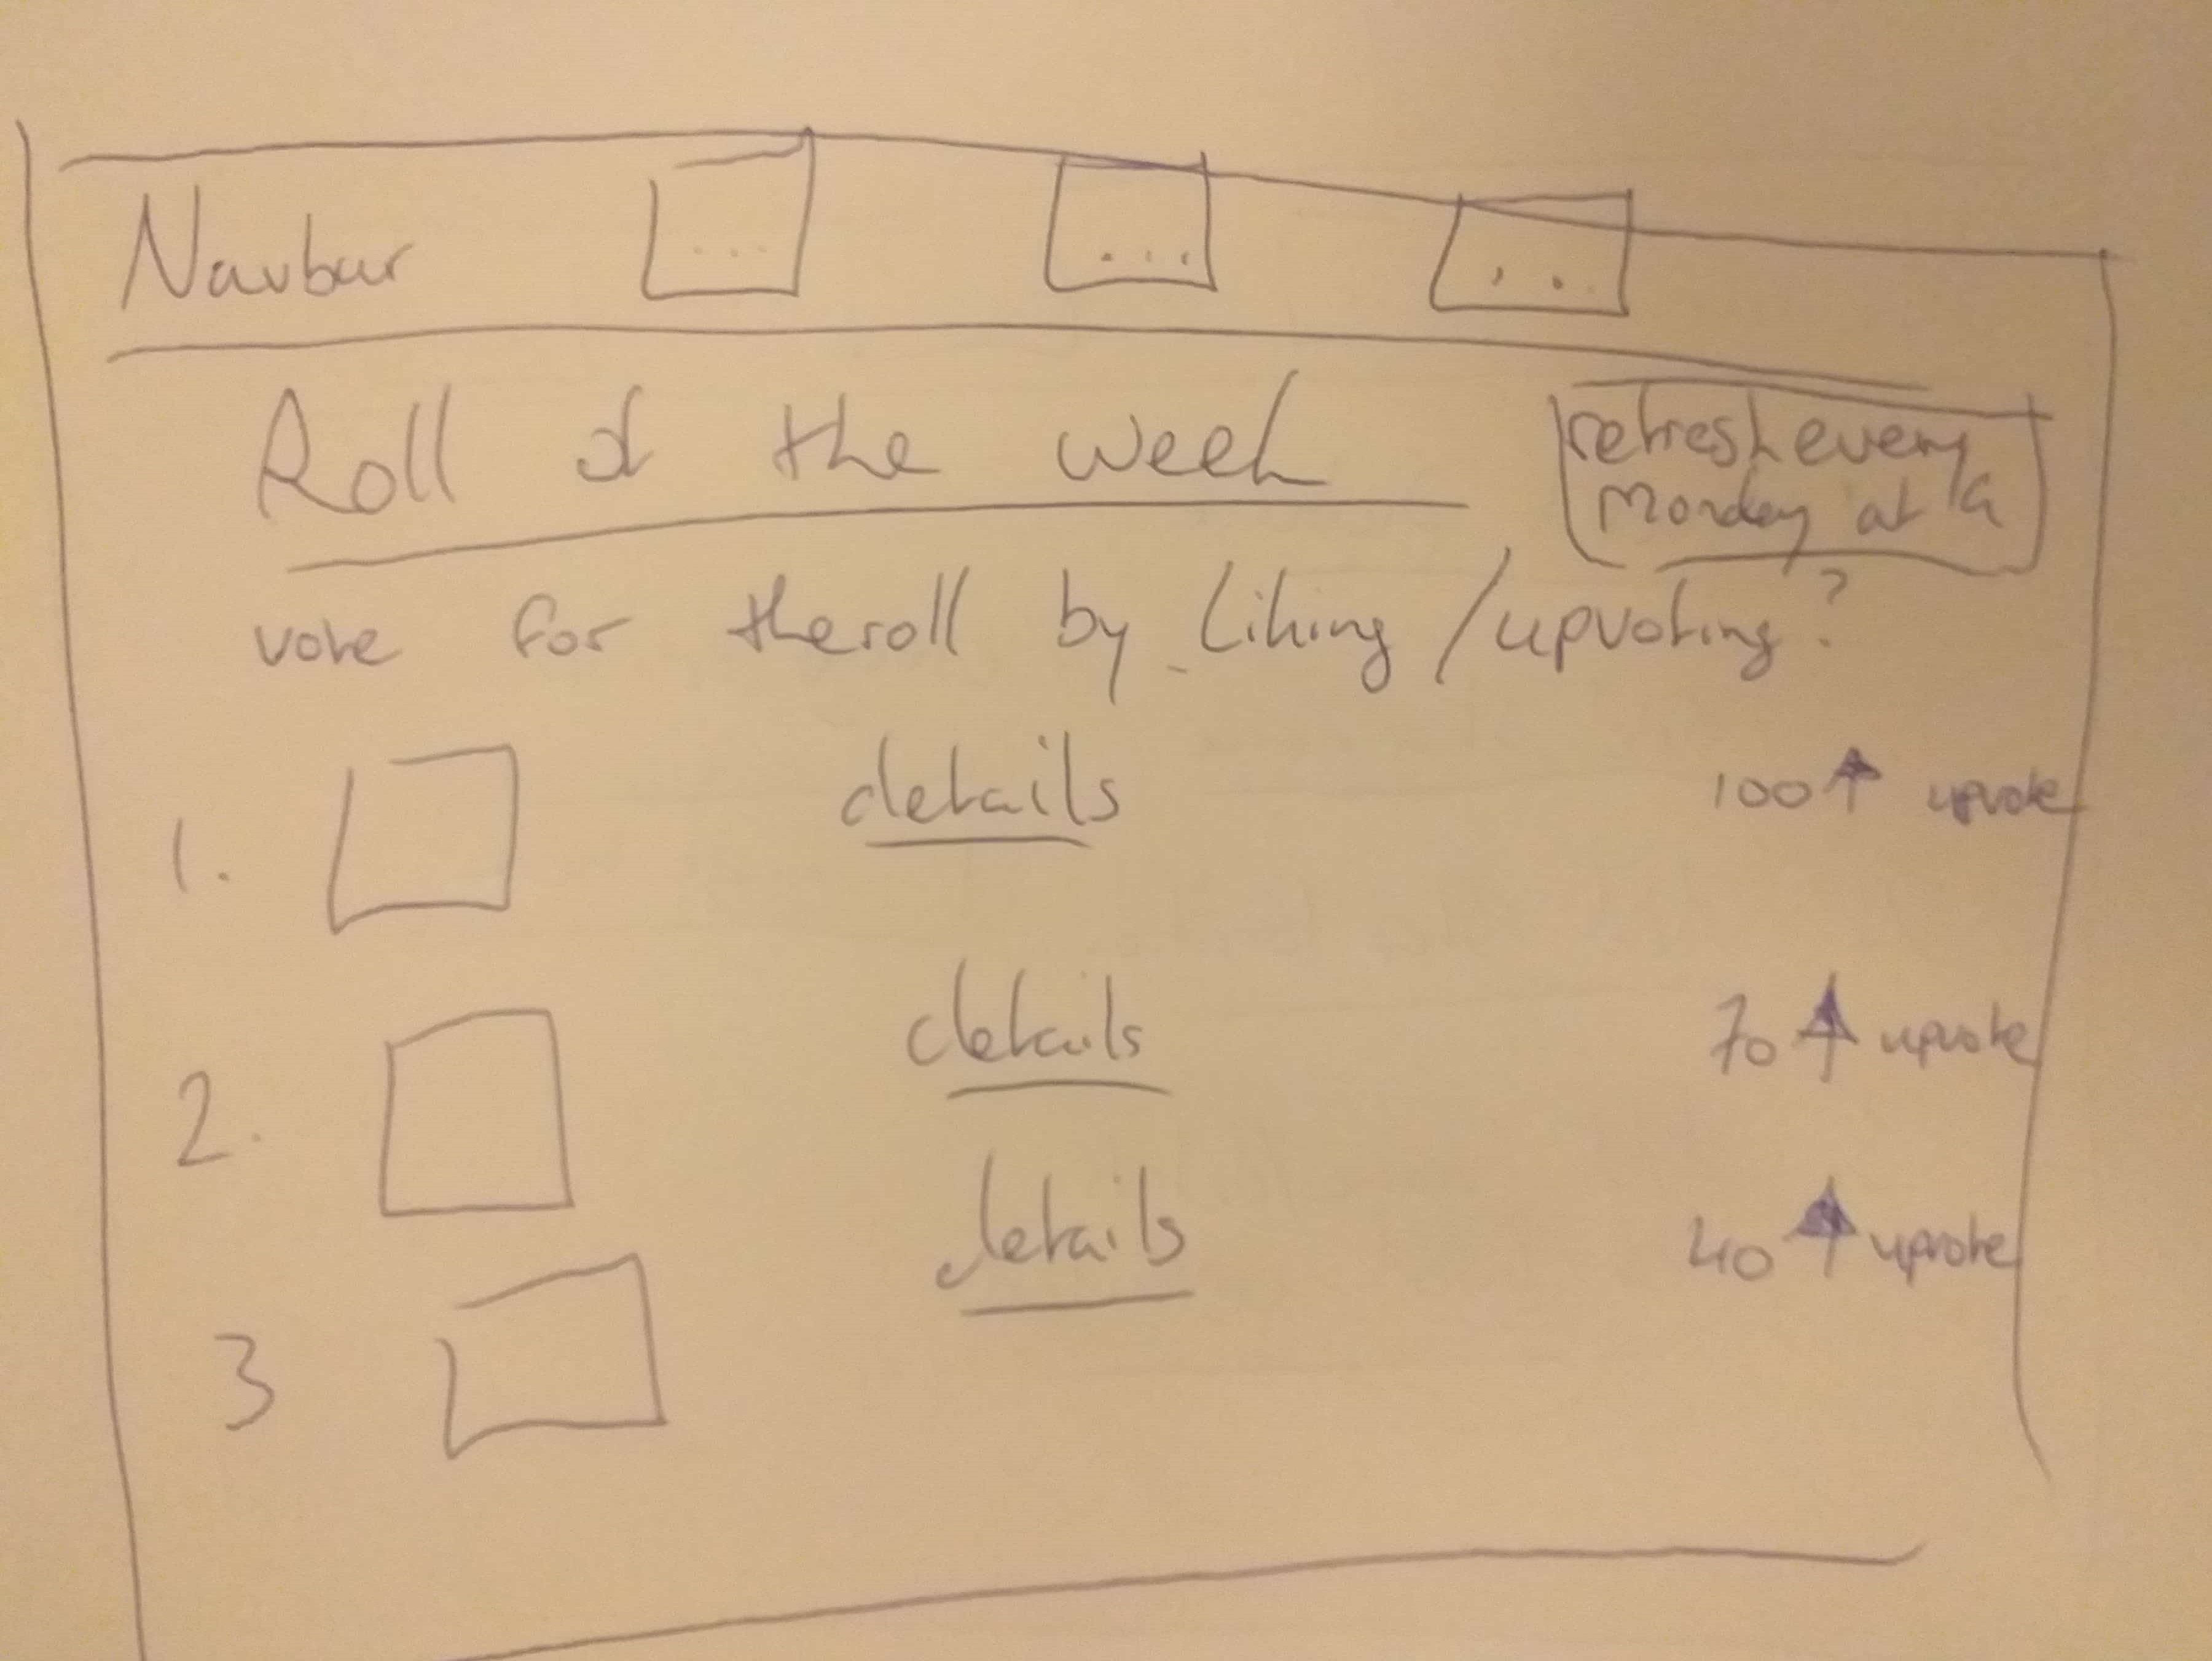 Navbar ... ... ...
Roll of the week
refresh every
Monday at
vote for the roll by liking / upvoting?
1. details 100 upvote
2. details 70 upvote
3 details 40 upvote